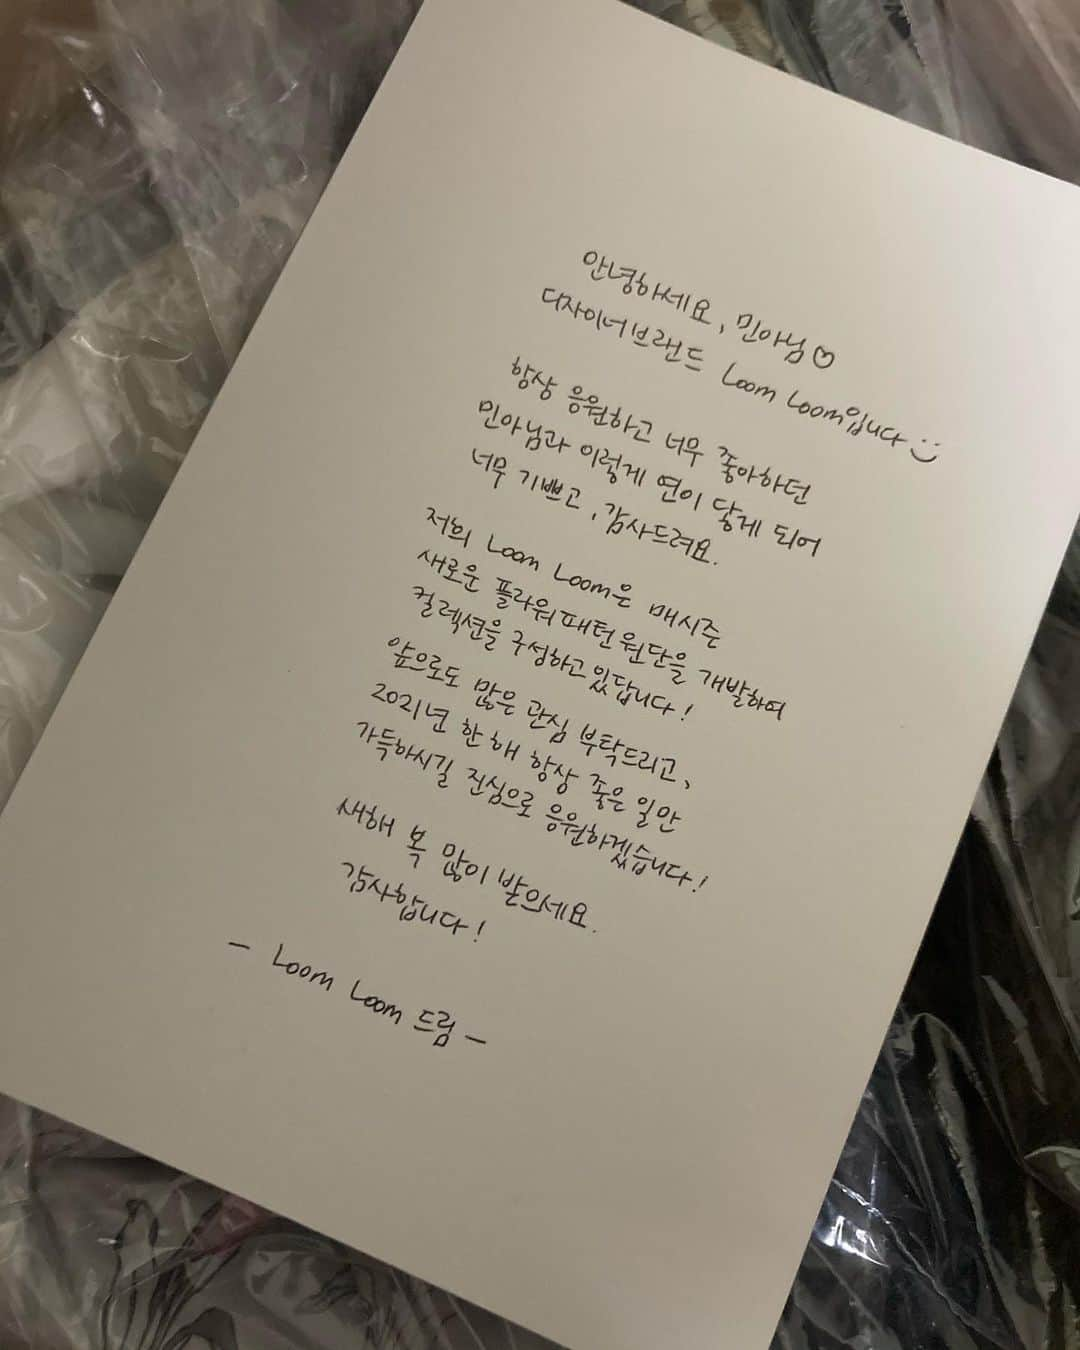 안녕하세요, 민아님♡
디자이너브랜드 Loom Loom입니다 :)
항상 응원하고 너무 좋아하던
민아님과 이렇게 연이 닿게 되어
너무 기쁘고, 감사드려요.
저희 Loom Loom은 매시즌
새로운 플라워패턴원단을 개발하여
컬렉션을 구성하고 있답니다!
앞으로도 많은 관심 부탁드리고,
2021년 한해 항상 좋은 일만
가득하시길 진심으로 응원하겠습니다!
새해 복 많이 받으세요.
감사합니다!
- Loom Loom 드림 -